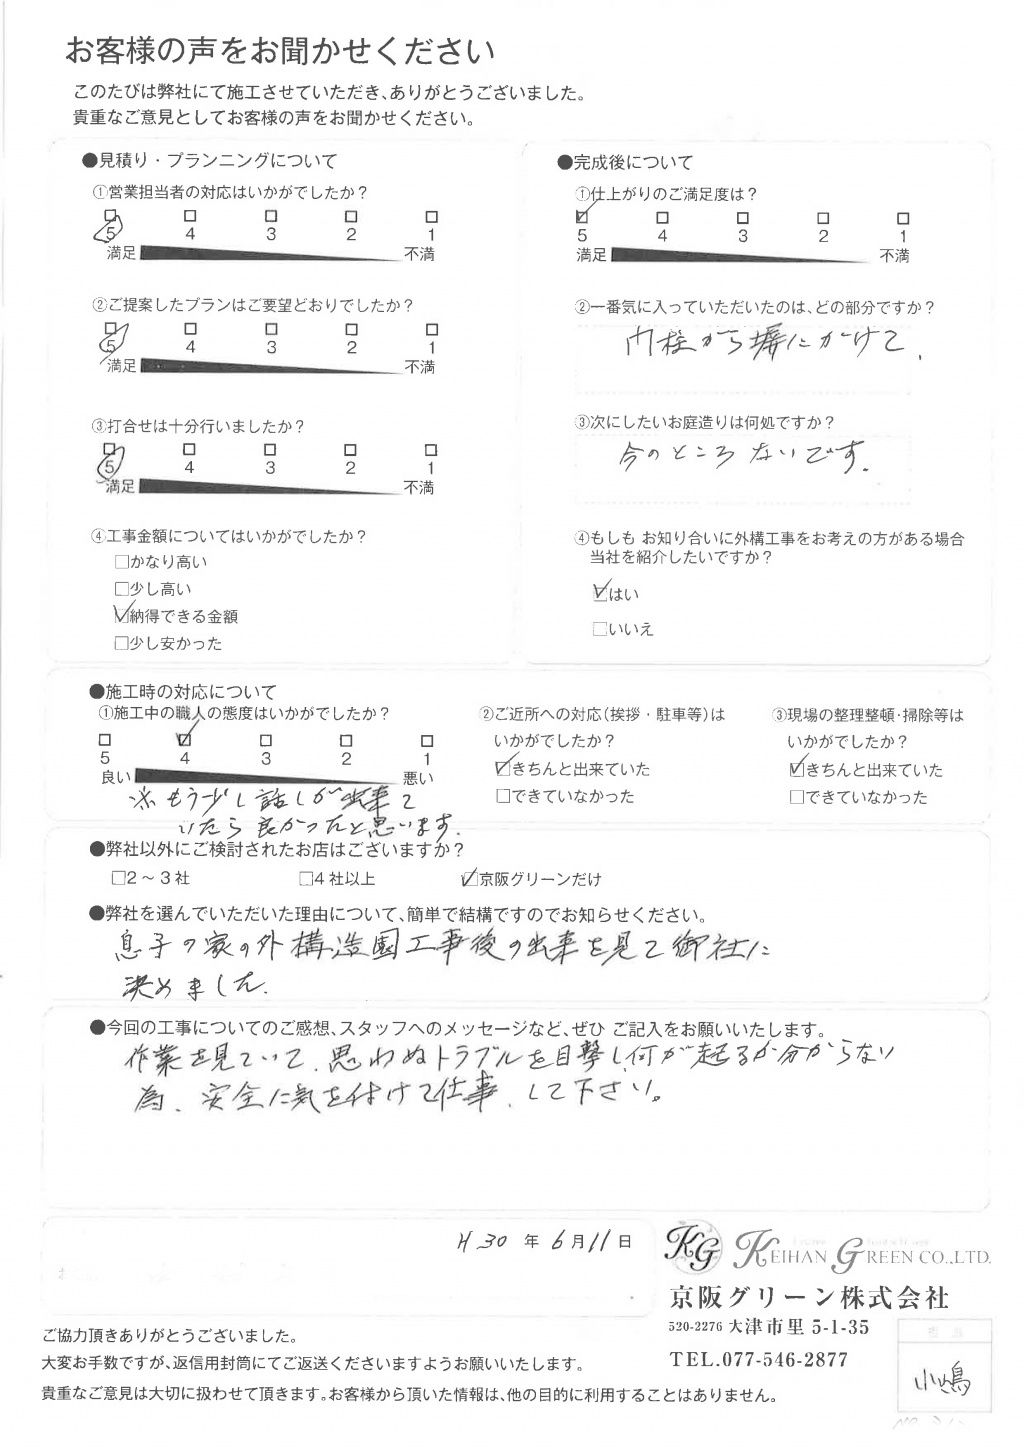 お客様の声をお聞かせください
このたびは弊社にて施工させていただき、ありがとうございました。
貴重なご意見としてお客様の声をお聞かせください。
●見積り・プランニングについて
①営業担当者の対応はいかがでしたか？
5 4 3 2 1
満足 不満
②ご提案したプランはご要望どおりでしたか？
5 4 3 2 1
満足 不満
③打合せは十分行いましたか？
5 4 3 2 1
満足 不満
④工事金額についてはいかがでしたか？
□かなり高い
□少し高い
☑納得できる金額
□少し安かった
●完成後について
①仕上がりのご満足度は？
5 4 3 2 1
満足 不満
②一番気に入っていただいたのは、どの部分ですか？
門柱から塀にかけて．
③次にしたいお庭造りは何処ですか？
今のところないです．
④もしも お知り合いに外構工事をお考えの方がある場合
当社を紹介したいですか？
☑はい
□いいえ
●施工時の対応について
①施工中の職人の態度はいかがでしたか？
5 4 3 2 1
良い 悪い
※もう少し話しが出来て
いたら良かったと思います．
②ご近所への対応(挨拶・駐車等)は
いかがでしたか？
☑きちんと出来ていた
□できていなかった
③現場の整理整頓・掃除等は
いかがでしたか？
☑きちんと出来ていた
□できていなかった
●弊社以外にご検討されたお店はございますか？
□2～3社 □4社以上 ☑京阪グリーンだけ
●弊社を選んでいただいた理由について、簡単で結構ですのでお知らせください。
息子の家の外構造園工事後の出来を見て御社に
決めました．
●今回の工事についてのご感想、スタッフへのメッセージなど、ぜひ ご記入をお願いいたします。
作業を見ていて、思わぬトラブルを目撃し、何が起るか分からない
為、安全に気を付けて仕事、して下さい。
H30年6月11日
KG KEIHAN GREEN CO.,LTD.
京阪グリーン株式会社
520-2276 大津市里 5-1-35
TEL.077-546-2877
ご協力頂きありがとうございました。
大変お手数ですが、返信用封筒にてご返送くださいますようお願いいたします。
貴重なご意見は大切に扱わせて頂きます。お客様から頂いた情報は、他の目的に利用することはありません。
担当
小嶋